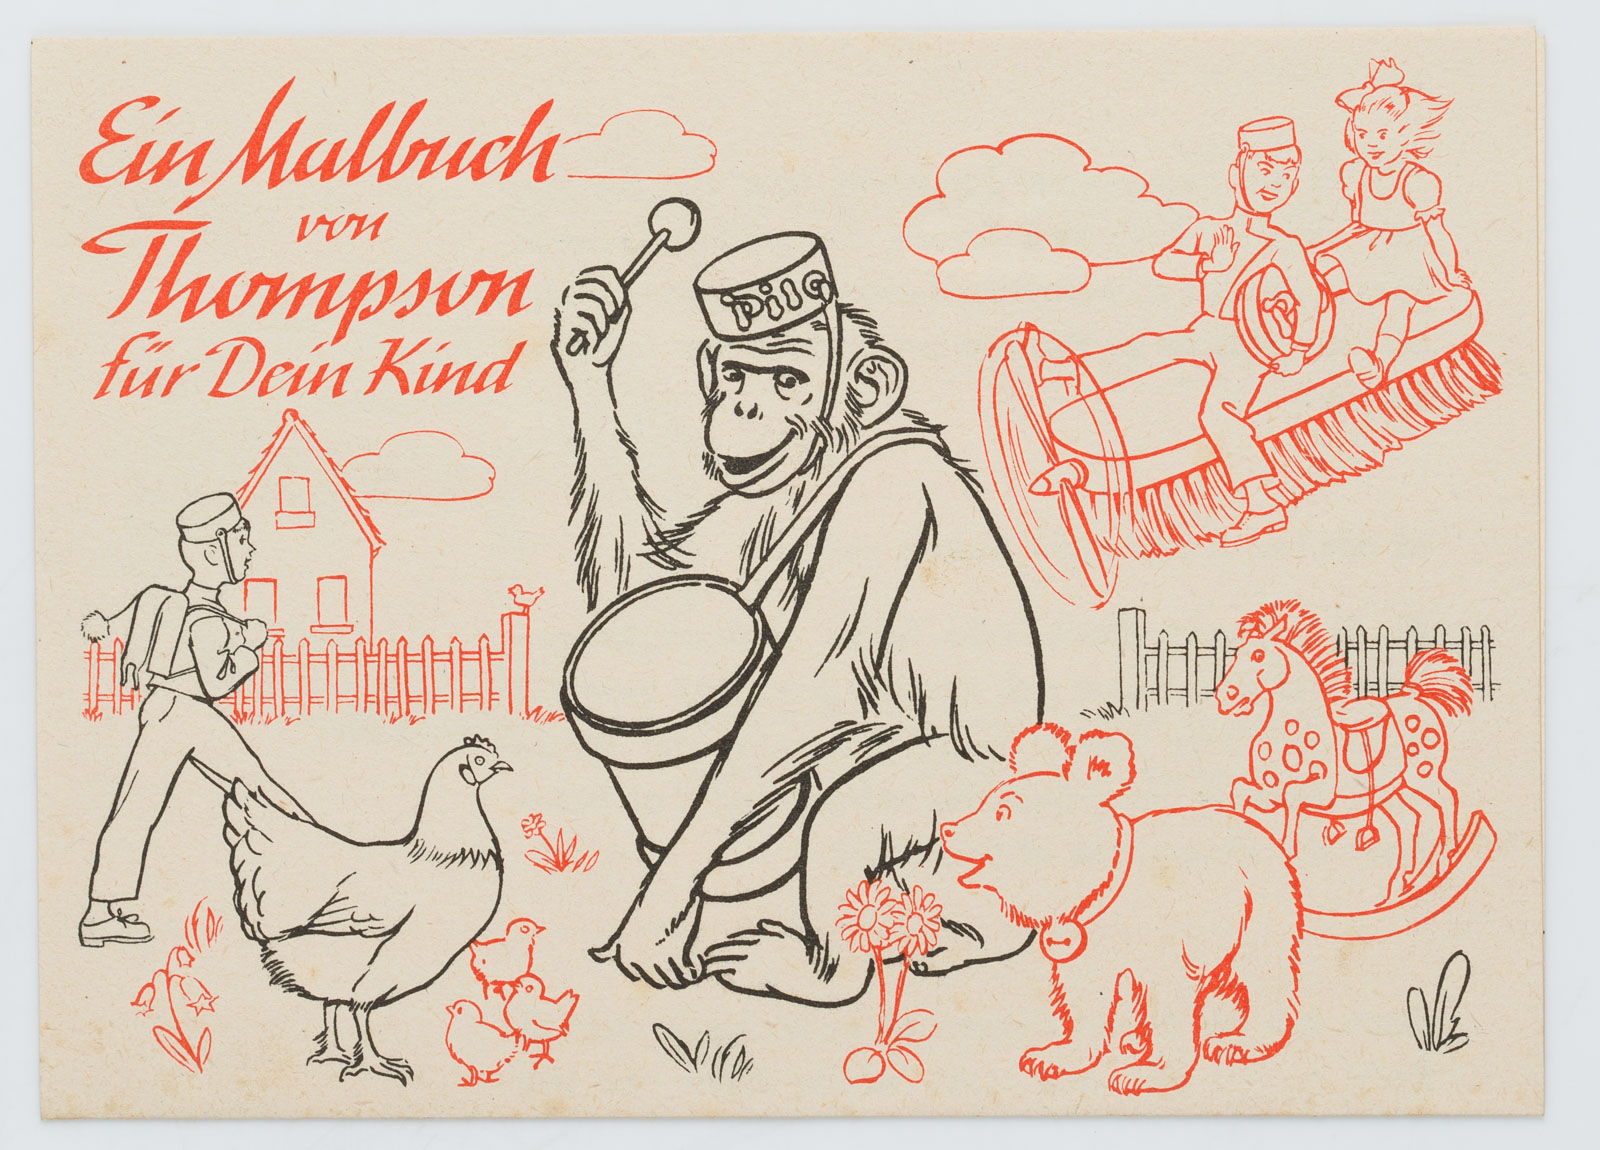 Ein Malbuch
von
Thompson
für Dein Kind
pilo